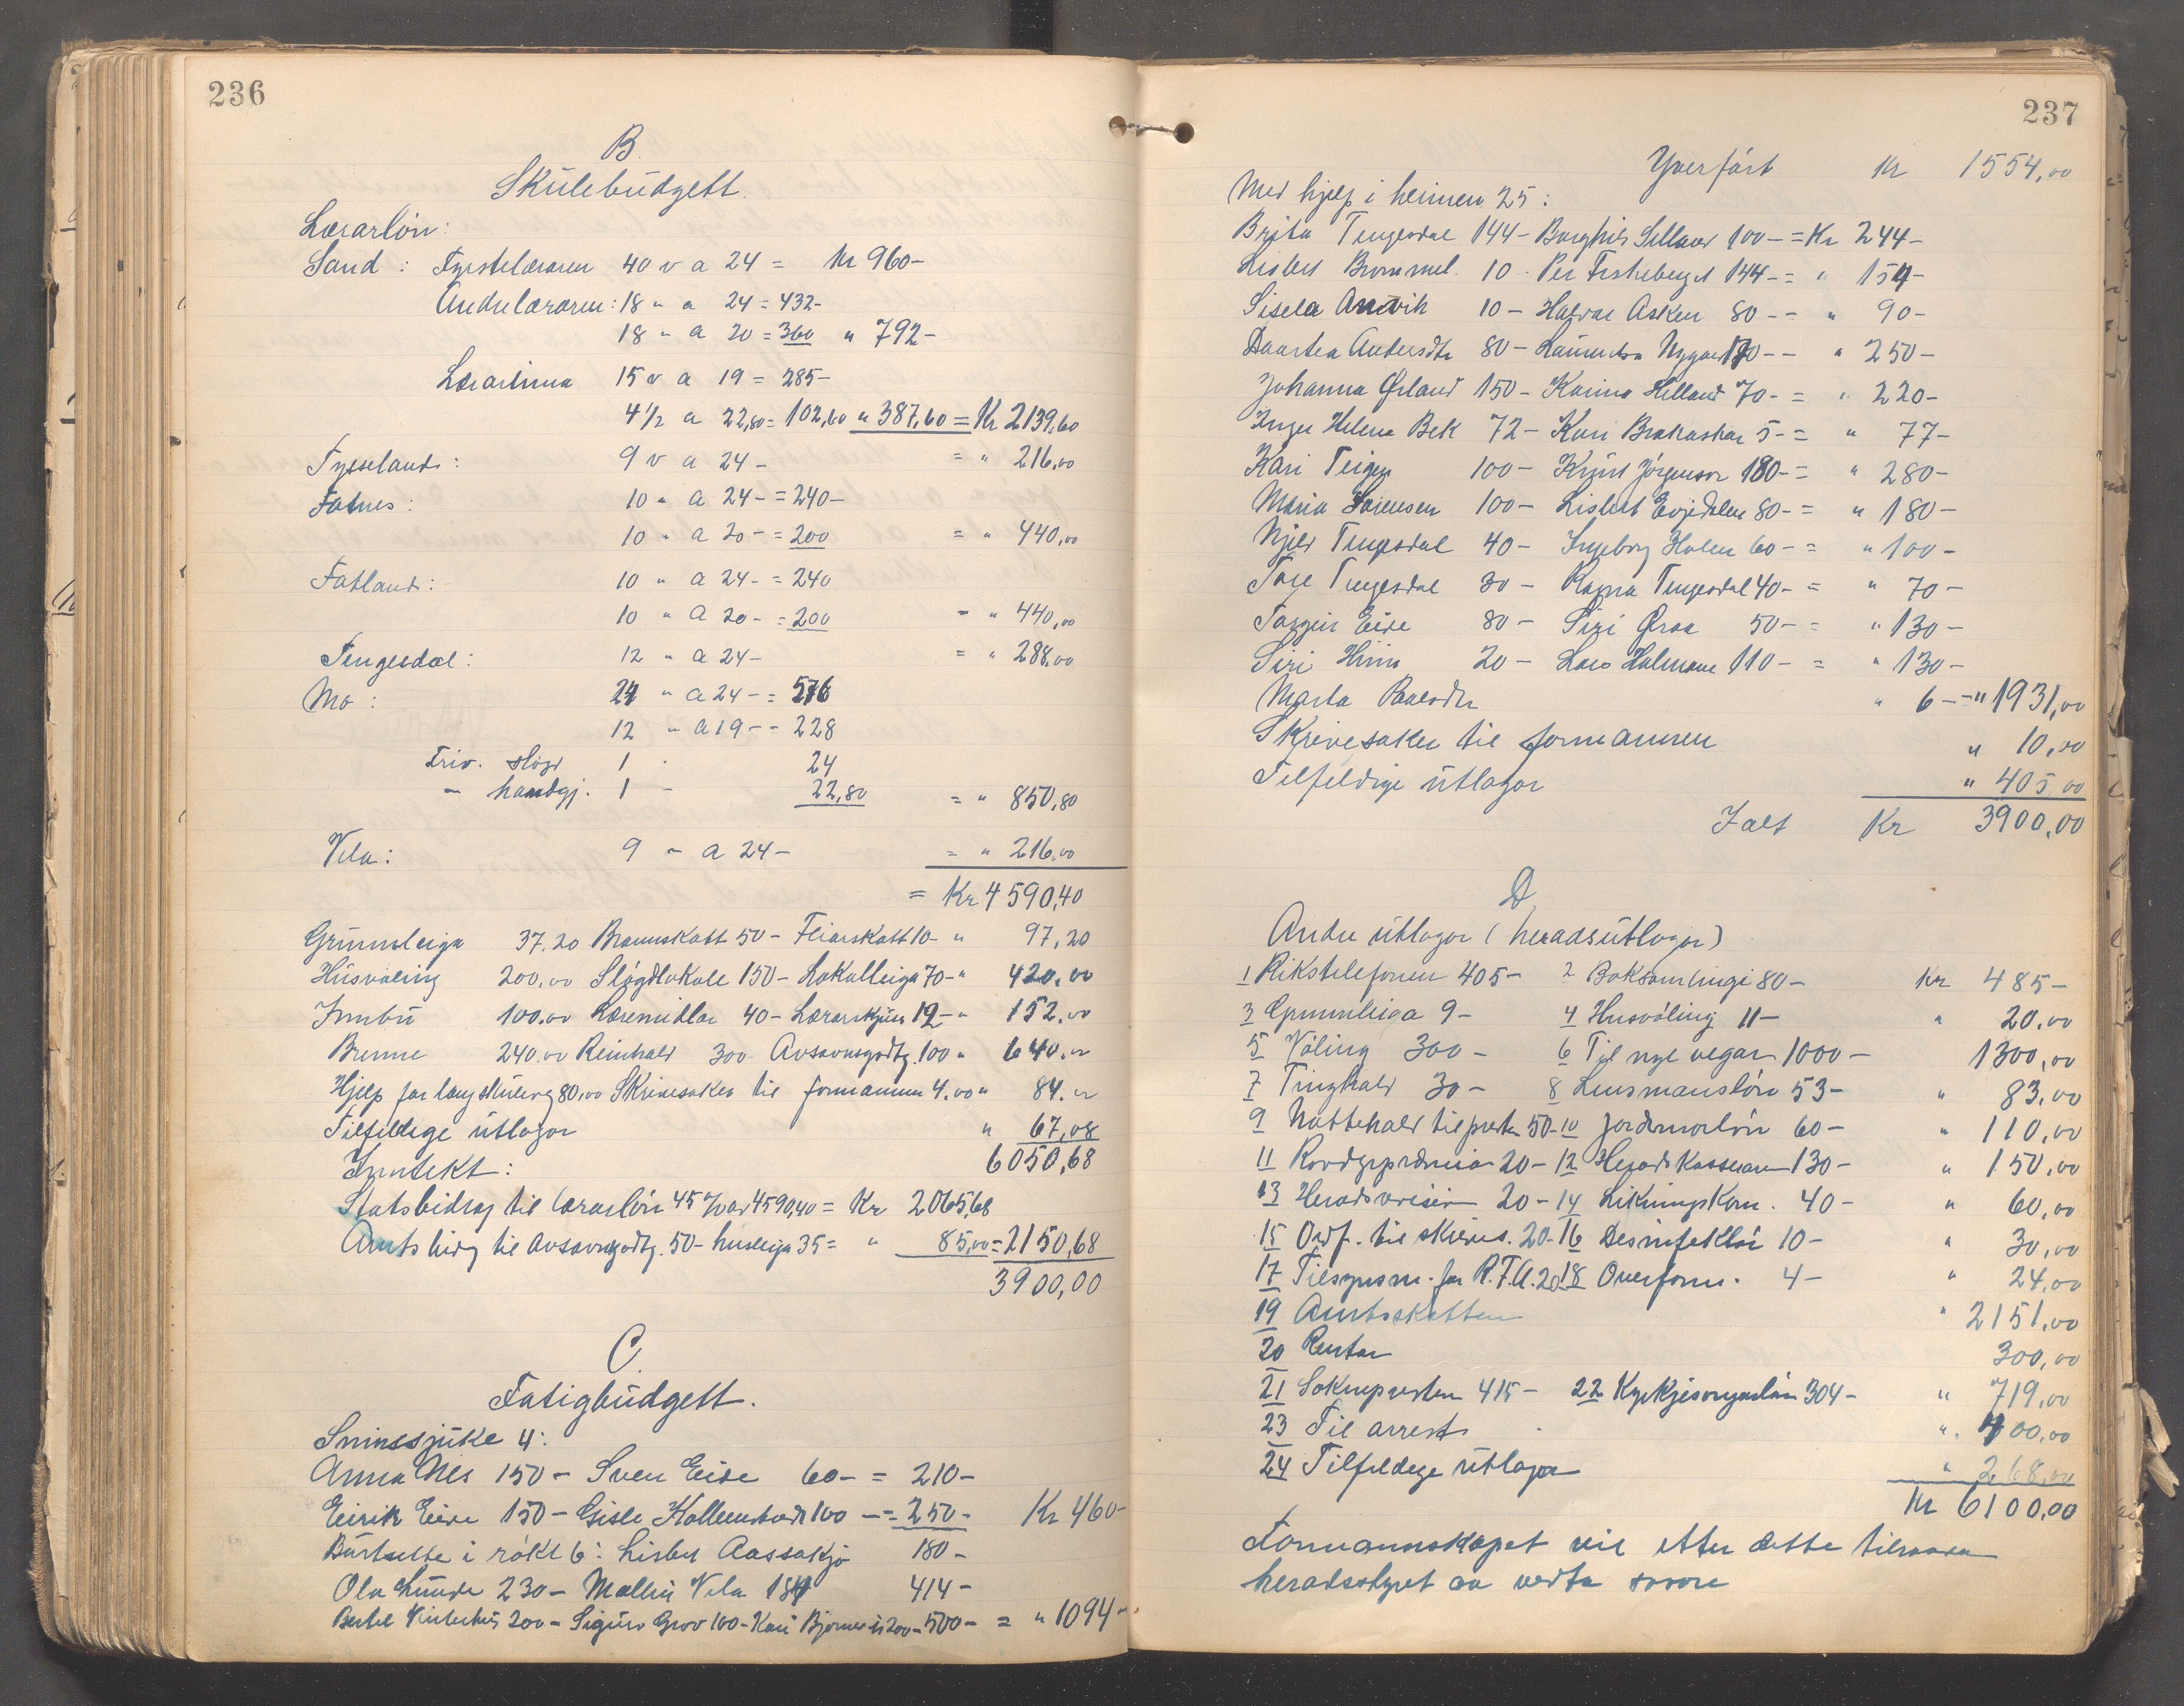 236
B.
Skulebudgett.
Lærarløn:
Sand: Fyrstelæraren 40 v a 24 = Kr 960-
Andrelæraren: 18 " a 24 = 432-
18 " a 20 = 360 " 792-
Lærarinna 15 v a 19 = 285-
4 1/2 a 22,80 = 102,60 " 387,60 = Kr 2139,60
Tysseland: 9 v a 24- = " 216,00
Fatnes: 10 " a 24- = 240-
10 " a 20- = 200 = " 440,00
Fatland: 10 " a 24- = 240
10 " a 20- = 200 = " 440,00
Tengesdal: 12 " a 24- = " 288,00
Mo: 24 " a 24- = 576
12 " a 19-- 228
Friv. sløgd 1 " 24
" handgj. 1 - 22,80 = " 850,80
Vela: 9 " a 24- = " 216,00
= Kr 4590,40
Grunnleiga 37.20 Brannskatt 50- Feiarskatt 10- " 97,20
Husvøling 200,00 Sløgdlokale 150- Lokalleiga 70- " 420,00
Innbu 100,00 Læremidlar 40- Lærarskjuss 12- " 152,00
Brenne 240,00 Reinhald 300 Avsavnsgodtg. 100 " 640,00
Hjelp for lang skuleveg 80,00 Skrivesaker til formannen 4.00 " 84,00
Tilfeldige utlagor " 67,08
Inntekt: 6050,68
Statsbidrag til lærarløn 45 % av 4590,40 = Kr 2065,68
Amtsbidrg til Avsavnsgodtg. 50- husleiga 35 = " 85,00 = 2150,68
3900,00
C.
Fatigbudgett.
Sinnssjuke 4:
Anna Nes 150- Sven Eide 60- = 210-
Eirik Eide 150- Gisle 100 -= 250- Kr 460-
Burtsette i røkt 6: Lisbet Aassakjø 180-
Ola Lunde 230- Mallin Vela 184 414-
Bertel Vinterhus 200- Sigurd Grov 100- Kari 200- 500- = " 1094-
237
Yverført Kr 1554,00
Med hjelp i heimen 25:
Brita Tengesdal 144- Borghild Selland 100- = Kr 244-
Lisbet Brommel. 10- Per Fiskeberget 144- = " 154-
Sisela Anvik 10- Halvar Asken 80-- " 90-
Daartea Andersdtr 80- Nygaard 170-- " 250-
Johanna Ørland 150- Karina Helland 70- = " 220-
Inger Helena Bek 72- Kari Brakaskar 5- = " 77-
Kari Teigen 100- Knut Jørgensen 180- = " 280-
Maria Sørensen 100- Lisbet Eijedalen 80- = " 180-
Njeld Tengesdal 40- Ingeborg Holen 60- = " 100-
Tore Tengesdal 30- Ragna Tengesdal 40- = " 70-
Torger Eide 80- Siri Øraa 50- = " 130-
Siri Hiim 20- Lars Holmane 110- = " 130-
Marta Paalsdtr " 6-= " 1931,00
Skrivesaker til formannen " 10,00
Tilfeldige utlagor " 405,00
Ialt Kr 3900,00
D
Andre utlagor (heradsutlagor)
1 Rikstelefonen 405- 2 Boksamlingi 80- Kr 485-
3 Grunnleiga 9- 4 Husvøling 11- " 20,00
5 Vøling 300- 6 Til nye vegar 1000- 1300,00
7 Tinghald 30- 8 Lensmansløn 53- " 83,00
9 Nattehald til presten 50- 10 Jordmorløn 60- " 110,00
11 Rovdyrpræmia 20- 12 Heradskasseraren 130- " 150,00
13 Heradsrevisor 20- 14 Likningskom. 40- " 60,00
15 Ordf. til skrives. 20- 16 Desinfektør 10- " 30,00
17 Tilsynsm. for R.T.A. 20 18 Overform. 4- " 24,00
19 Amtsskatten " 2151,00
20 Rentor 300,00
21 Soknepresten 415- 22 Kyrkjesongarløn 304- " 719,00
23 Til arrest " 400,00
24 Tilfeldege utlagor " 268,00
Kr 6100,00
Formannskapet vil etter dette tilraada
heradsstyret aa vedta